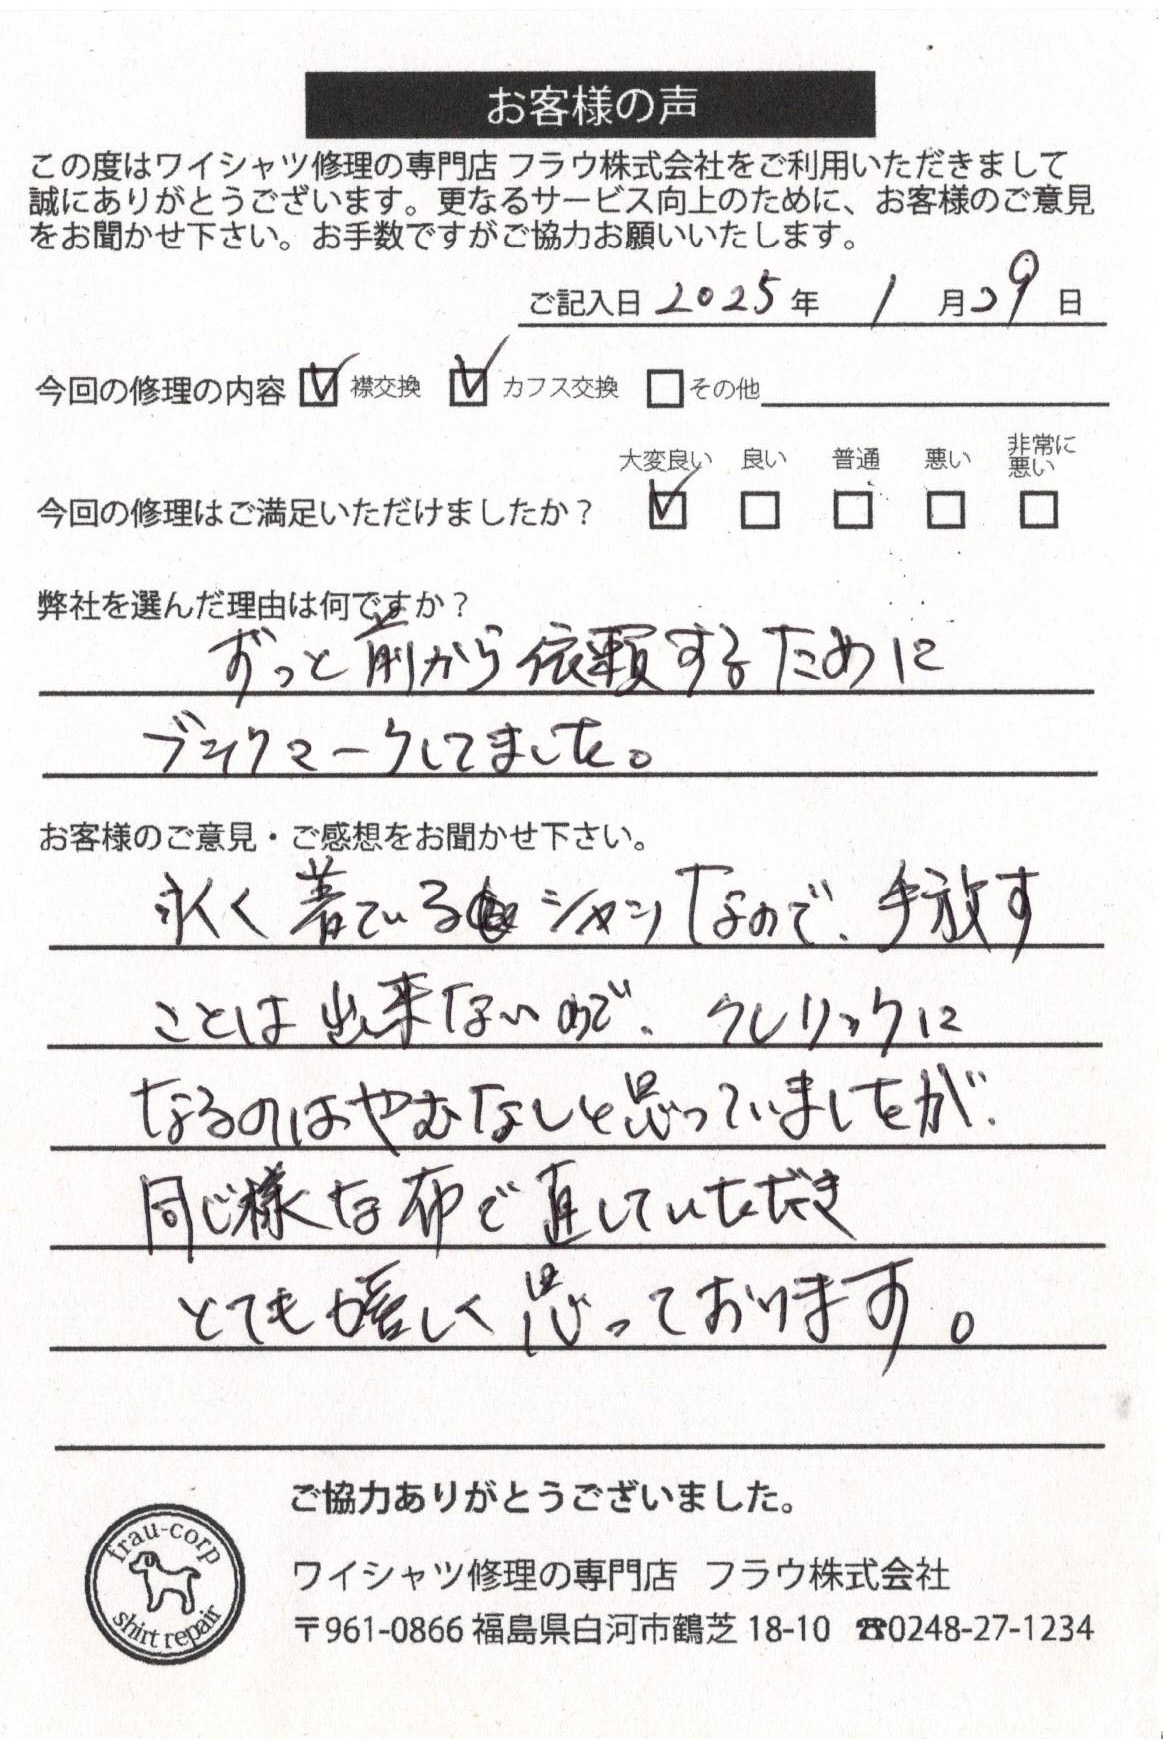 お客様の声
この度はワイシャツ修理の専門店 フラウ株式会社をご利用いただきまして
誠にありがとうございます。更なるサービス向上のために、お客様のご意見
をお聞かせ下さい。お手数ですがご協力お願いいたします。
ご記入日 2025 年 1 月 29 日
今回の修理の内容 ☑ 襟交換 ☑ カフス交換 □ その他
大変良い 良い 普通 悪い 非常に悪い
今回の修理はご満足いただけましたか？ ☑ □ □ □ □
弊社を選んだ理由は何ですか？
ずっと前から依頼するために
ブックマークしてました。
お客様のご意見・ご感想をお聞かせ下さい。
永く着ているシャツなので、手放す
ことは出来ないので、クレリックに
なるのはやむなしと思っていましたが、
同じ様な布で直していただき
とても嬉しく思っております。
ご協力ありがとうございました。
frau-corp
shirt repair
ワイシャツ修理の専門店 フラウ株式会社
〒961-0866 福島県白河市鶴芝 18-10 ☎0248-27-1234